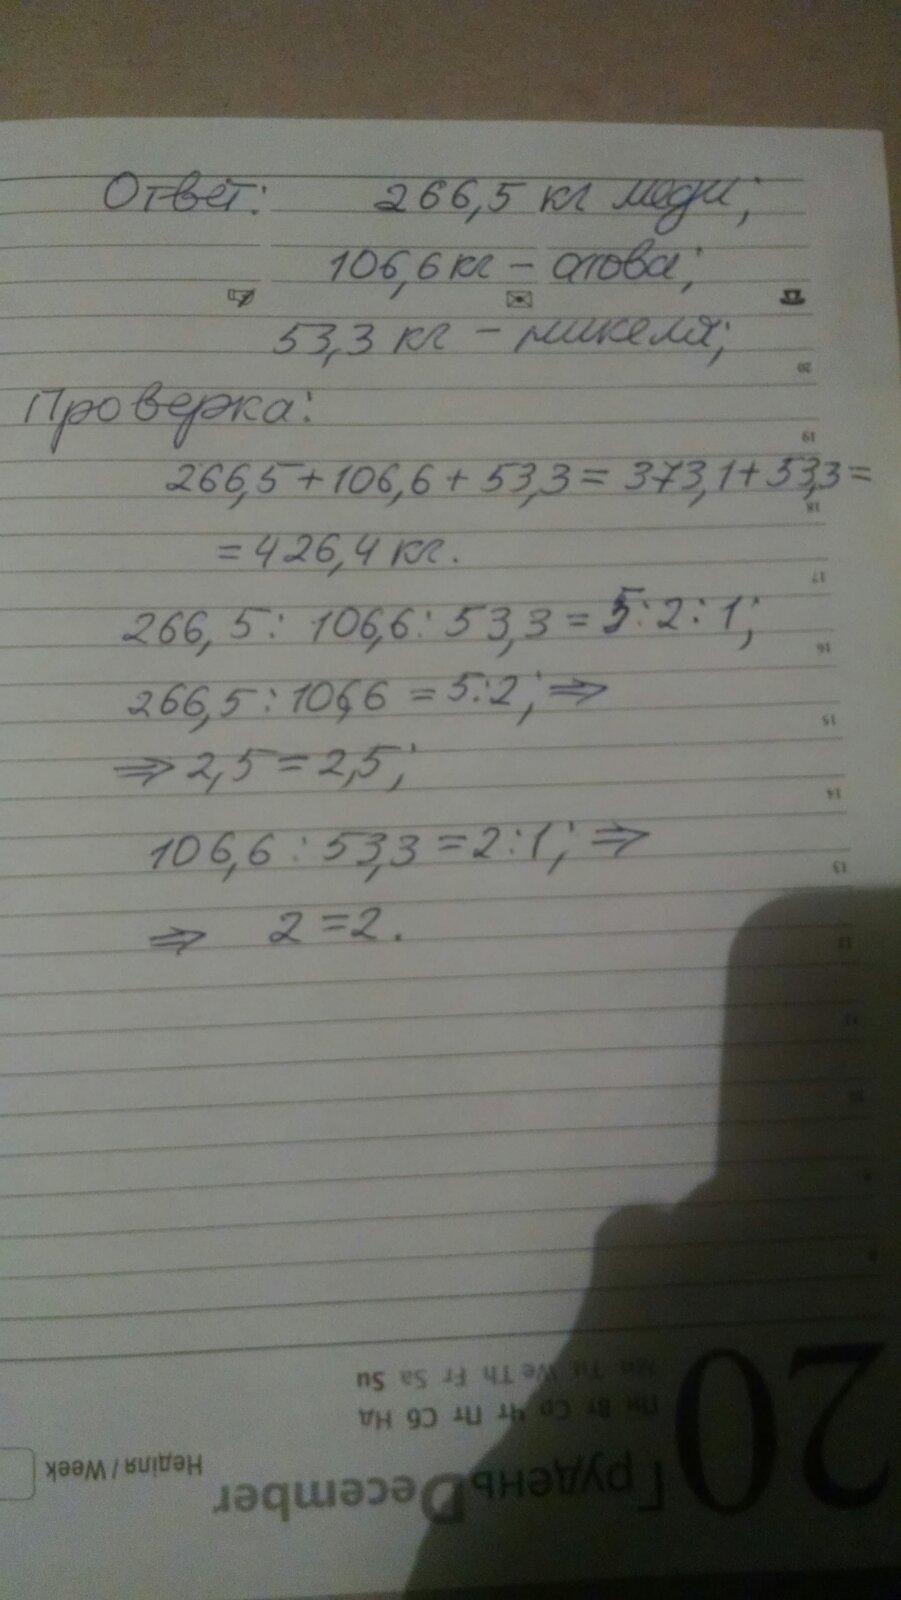 Ответ: 266,5 кг меди;
106,6 кг - олова;
53,3 кг - никеля;
Проверка:
266,5 + 106,6 + 53,3 = 373,1 + 53,3 =
= 426,4 кг.
266,5 : 106,6 : 53,3 = 5 : 2 : 1;
266,5 : 106,6 = 5 : 2; ⇒
⇒ 2,5 = 2,5;
106,6 : 53,3 = 2 : 1; ⇒
⇒ 2 = 2.
20
19
18
17
16
15
14
13
12
11
10
9
8
Mo Tu We Th Fr Sa Su
Пн Вт Ср Чт Пт Сб Нд
Неділя / Week
Грудень December
20